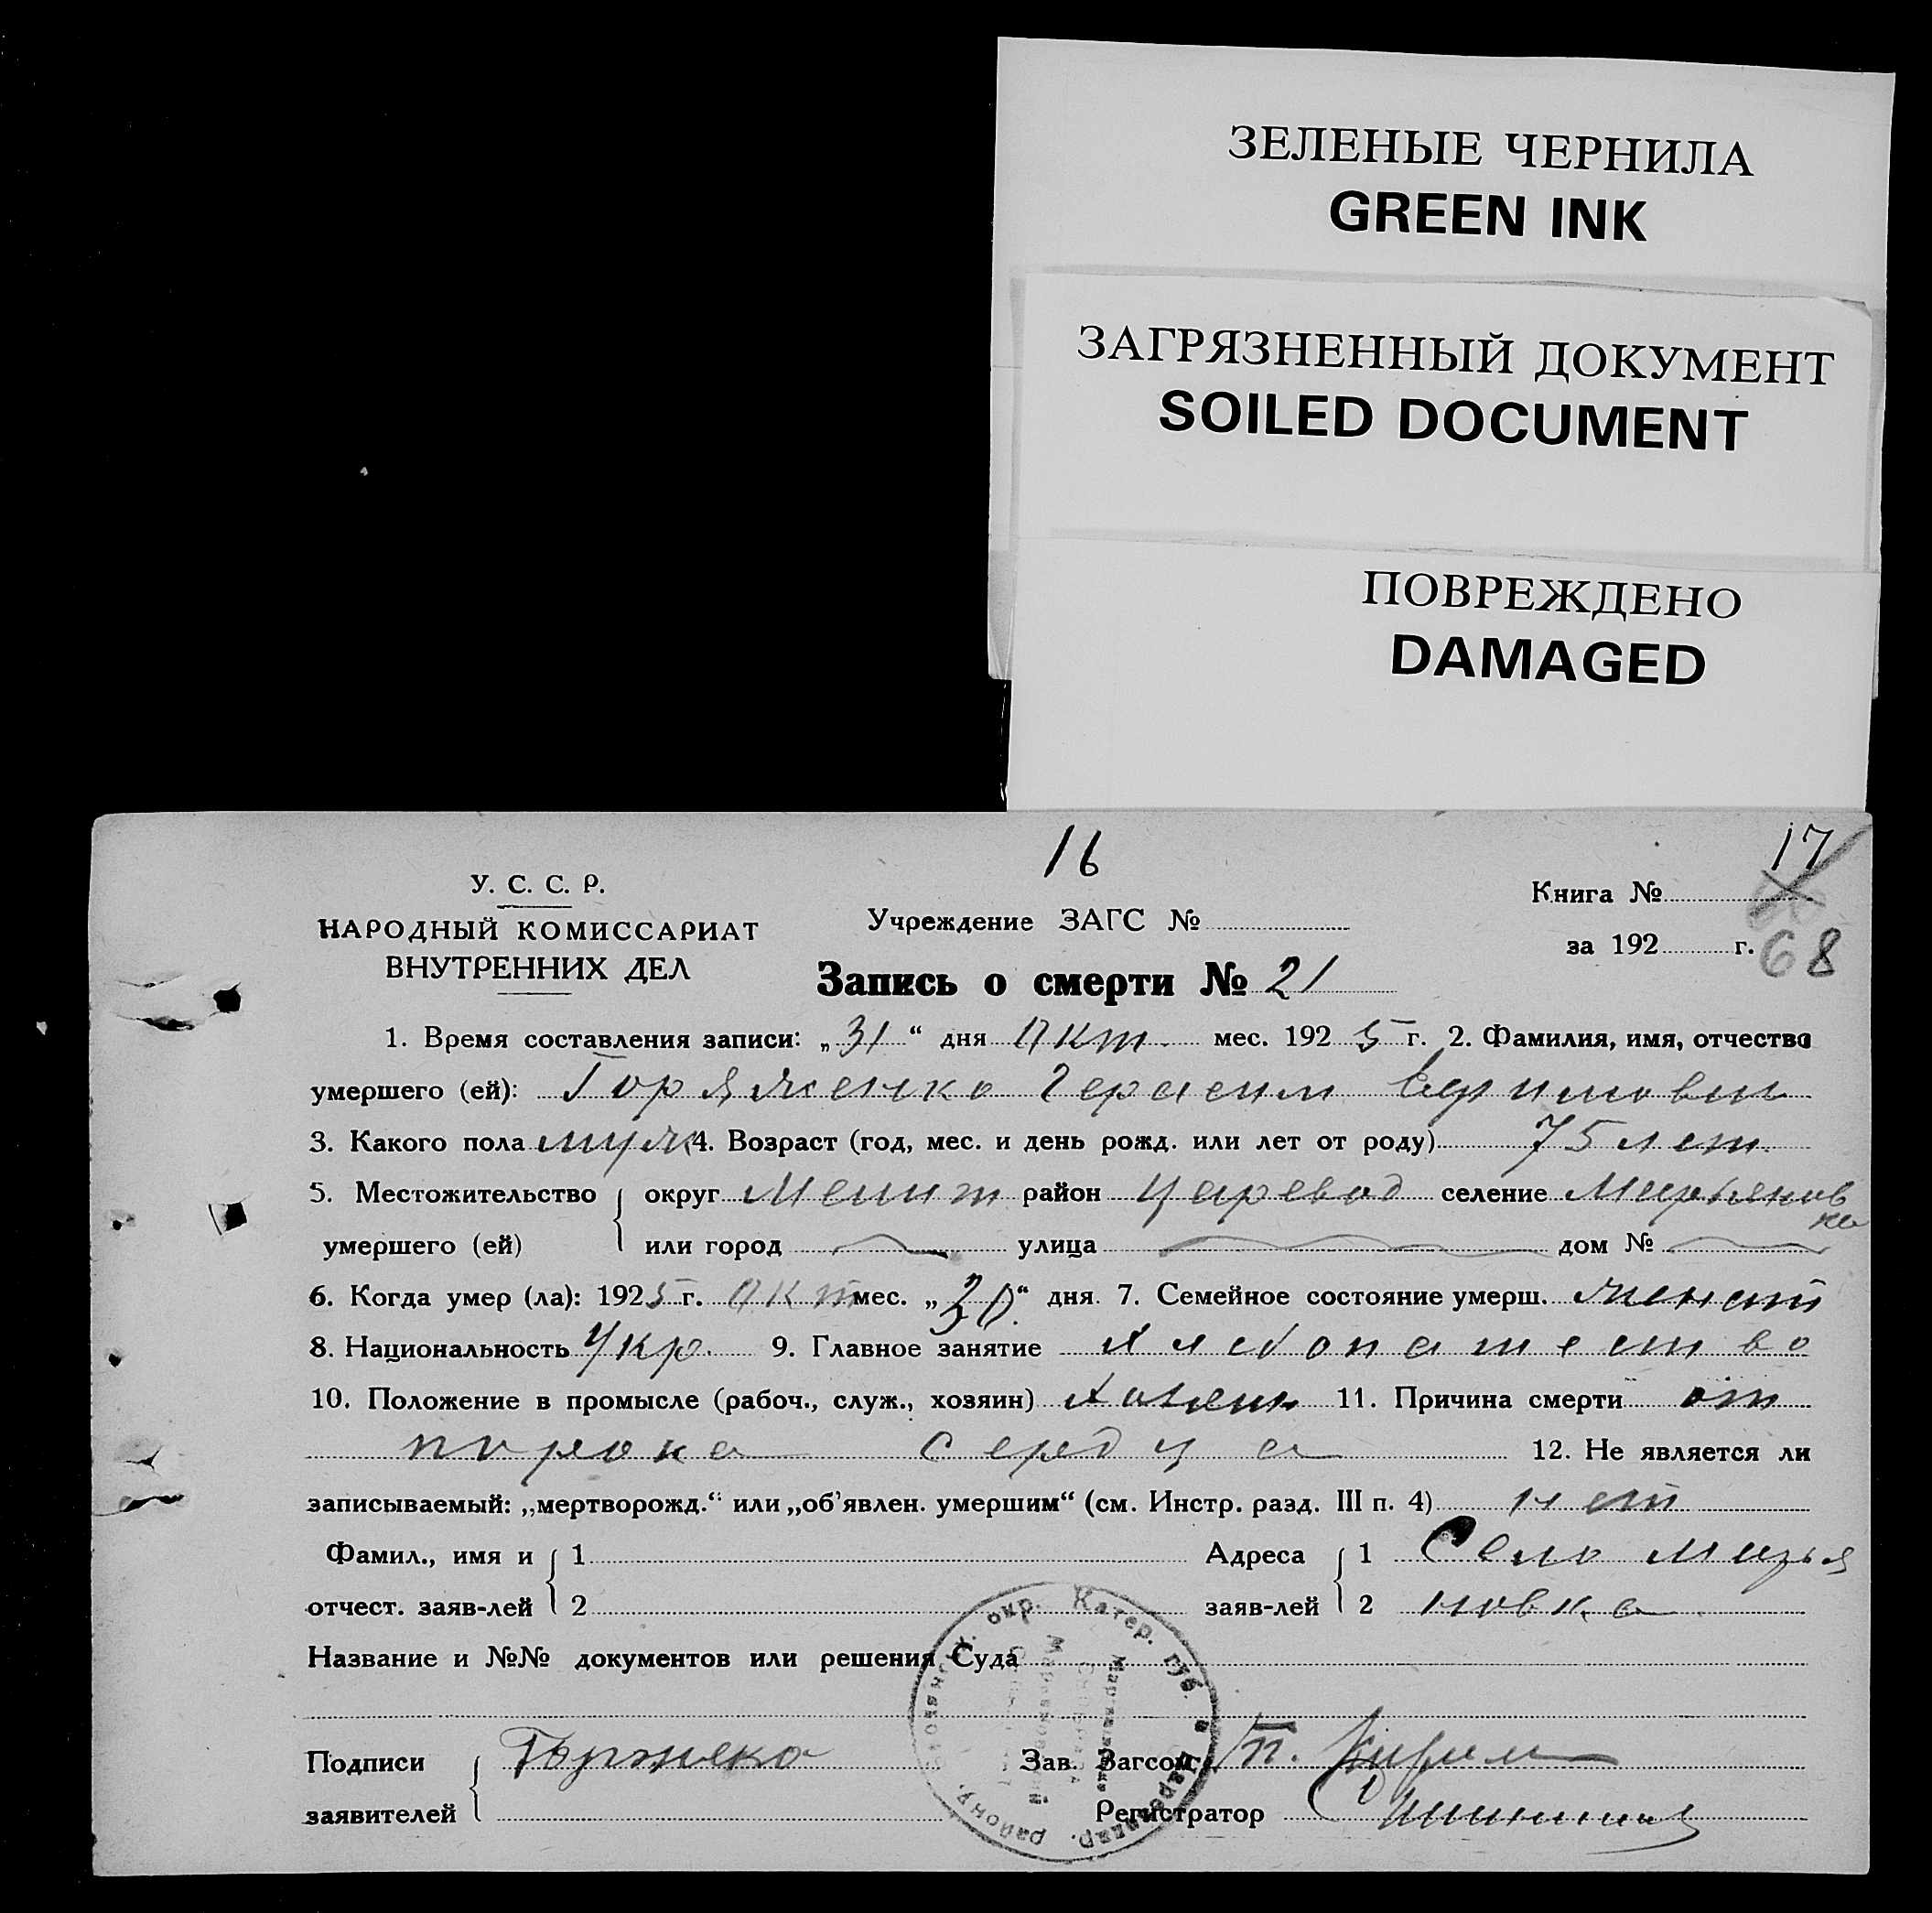 ЗЕЛЕНЫЕ ЧЕРНИЛА
GREEN INK
ЗАГРЯЗНЕННЫЙ ДОКУМЕНТ
SOILED DOCUMENT
ПОВРЕЖДЕНО
DAMAGED
16
17
У. С. С. Р.
НАРОДНЫЙ КОМИССАРИАТ
ВНУТРЕННИХ ДЕЛ
Учреждение ЗАГС №
Книга №
за 192 г. 68
Запись о смерти № 21
1. Время составления записи: „31“ дня Окт. мес. 1925 г. 2. Фамилия, имя, отчество
умершего (ей): Герасим
3. Какого пола муж 4. Возраст (год, мес. и день рожд. или лет от роду) 75 лет
5. Местожительство округ Мелит район Царевод селение Марьяновка
умершего (ей) или город улица дом №
6. Когда умер (ла): 1925 г. Окт мес. „30“ дня. 7. Семейное состояние умерш. женат
8. Национальность Укр. 9. Главное занятие хлебопашество
10. Положение в промысле (рабоч., служ., хозяин) хозяин 11. Причина смерти от
порока сердца 12. Не является ли
записываемый: „мертворожд.“ или „об'явлен. умершим“ (см. Инстр. разд. III п. 4) нет
Фамил., имя и 1 Адреса 1 Село Марья
отчест. заяв-лей 2 заяв-лей 2 новка
Название и №№ документов или решения Суда
Подписи Зав. Загсом
заявителей Регистратор
окр. Катер. губ.
району